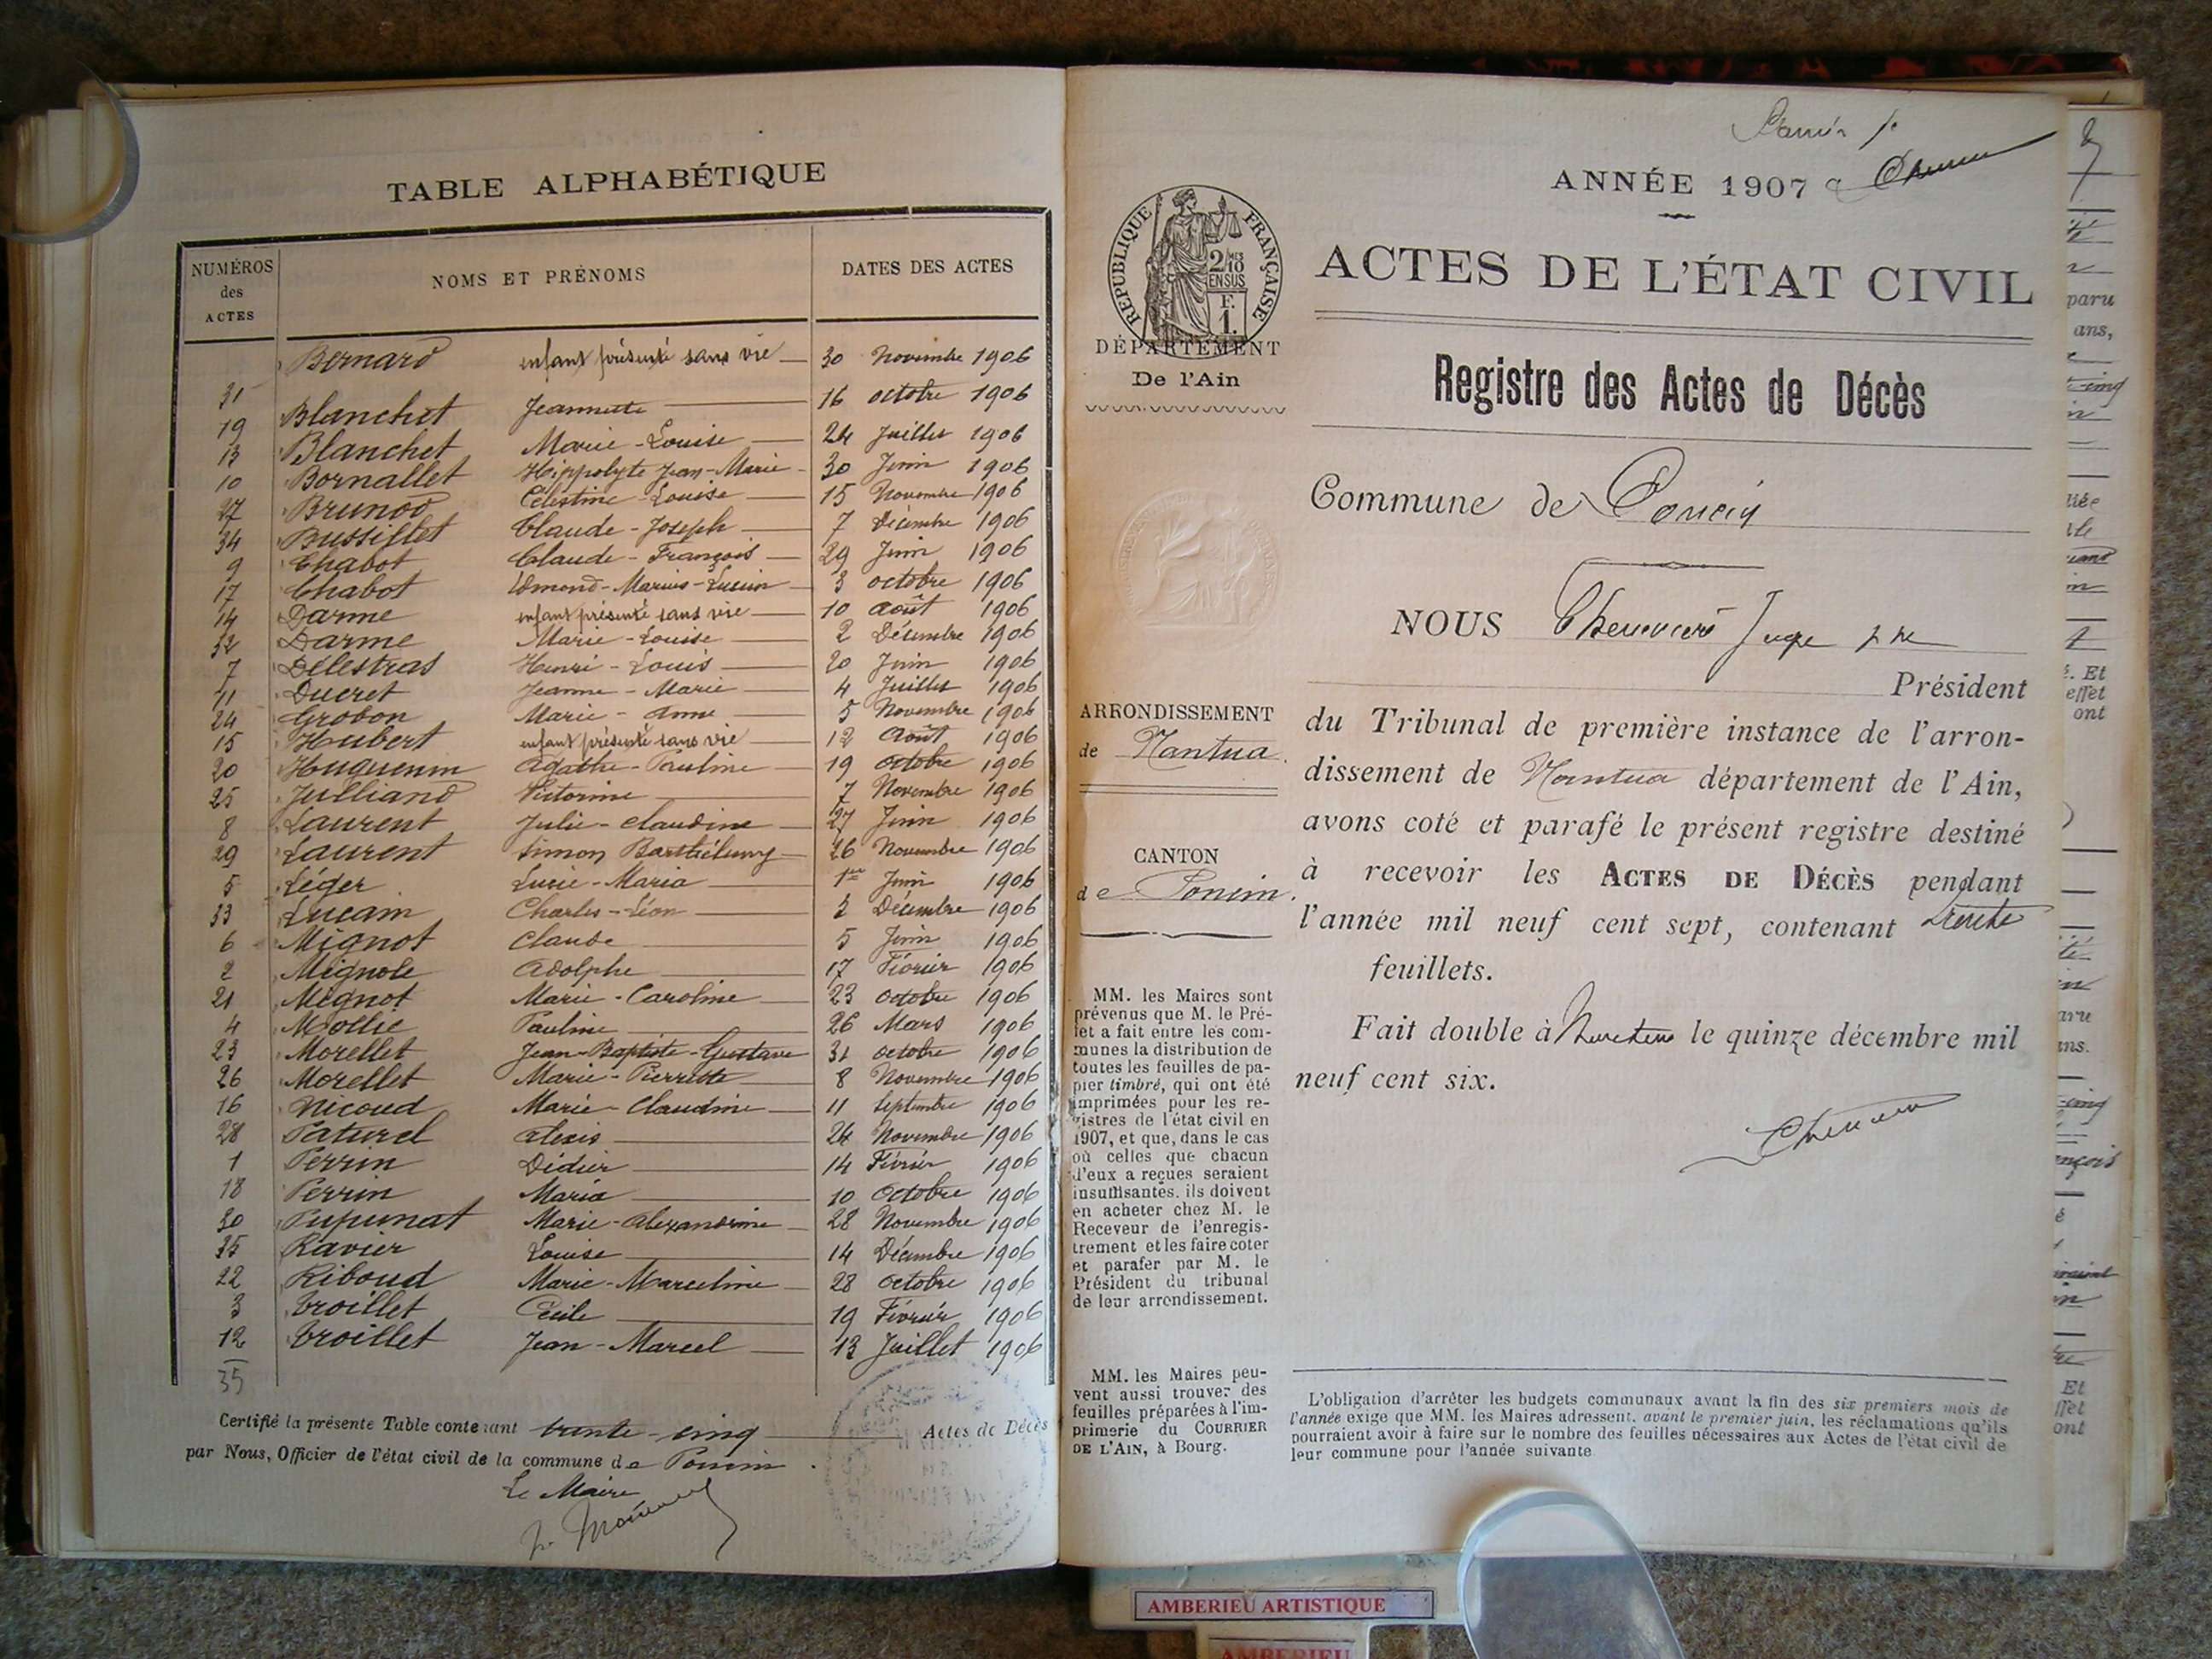 TABLE ALPHABÉTIQUE
NUMÉROS des ACTES NOMS ET PRÉNOMS DATES DES ACTES
31 Bernard enfant présenté sans vie 30 Novembre 1906
19 Blanchet Jeannette 16 octobre 1906
13 Blanchet Marie-Louise 24 Juillet 1906
10 Bornallet Hippolyte Jean-Marie 30 Juin 1906
27 Brunod Célestine-Louise 15 Novembre 1906
34 Bussillet Claude-Joseph 7 Décembre 1906
9 Chabot Claude-François 29 Juin 1906
17 Chabot Edmond-Marius-Lucien 3 octobre 1906
14 Darme enfant présenté sans vie 10 août 1906
32 Darme Marie-Louise 2 Décembre 1906
7 Délestras Henri-Louis 20 Juin 1906
11 Ducret Jeanne-Marie 4 Juillet 1906
24 Grobon Marie-Anne 5 Novembre 1906
15 Hubert enfant présenté sans vie 12 août 1906
20 Huguenin Agathe-Pauline 19 octobre 1906
25 Julliand Victorine 7 Novembre 1906
8 Laurent Julie-Claudine 27 Juin 1906
29 Laurent Simon Barthélemy 26 Novembre 1906
5 Léger Lucie-Maria 1er Juin 1906
33 Lucain Charles-Léon 2 Décembre 1906
6 Mignot Claude 5 Juin 1906
2 Mignole Adolphe 17 Février 1906
21 Mignot Marie-Caroline 23 octobre 1906
4 Mollie Pauline 26 Mars 1906
23 Morellet Jean-Baptiste-Gustave 31 octobre 1906
26 Morellet Marie-Pierrette 8 Novembre 1906
16 Nicoud Marie-Claudine 11 Septembre 1906
28 Paturel Alexis 24 Novembre 1906
1 Perrin Didier 14 Février 1906
18 Perrin Maria 10 Octobre 1906
30 Pupunat Marie-Alexandrine 28 Novembre 1906
35 Ravier Louise 14 Décembre 1906
22 Riboud Marie-Marceline 28 octobre 1906
3 Troillet Cécile 19 Février 1906
12 Troillet Jean-Marcel 13 Juillet 1906
35
Certifié la présente Table contenant trente-cinq Actes de Décès
par Nous, Officier de l'état civil de la commune de Poncin.
Le Maire
ANNÉE 1907
RÉPUBLIQUE FRANÇAISE
2/10 MES EN SUS
F. 1.
DÉPARTEMENT
De l'Ain
ACTES DE L'ÉTAT CIVIL
Registre des Actes de Décès
Commune de Poncin
NOUS Juge
Président
du Tribunal de première instance de l'arron-
dissement de Nantua département de l'Ain,
avons coté et parafé le présent registre destiné
à recevoir les ACTES DE DÉCÈS pendant
l'année mil neuf cent sept, contenant trente
feuillets.
Fait double à Nantua le quinze décembre mil
neuf cent six.
ARRONDISSEMENT
de Nantua.
CANTON
de Poncin.
MM. les Maires sont
prévenus que M. le Pré-
fet a fait entre les com-
munes la distribution de
toutes les feuilles de pa-
pier timbré, qui ont été
imprimées pour les re-
gistres de l'état civil en
1907, et que, dans le cas
où celles que chacun
d'eux a reçues seraient
insuffisantes, ils doivent
en acheter chez M. le
Receveur de l'enregis-
trement et les faire coter
et parafer par M. le
Président du tribunal
de leur arrondissement.
MM. les Maires peu-
vent aussi trouver des
feuilles préparées à l'im-
primerie du COURRIER
DE L'AIN, à Bourg.
L'obligation d'arrêter les budgets communaux avant la fin des six premiers mois de
l'année exige que MM. les Maires adressent, avant le premier juin, les réclamations qu'ils
pourraient avoir à faire sur le nombre des feuilles nécessaires aux Actes de l'état civil de
leur commune pour l'année suivante
paru
ans,
Et
effet
ont
ans.
Et
ont
AMBERIEU ARTISTIQUE
AMBERIEU